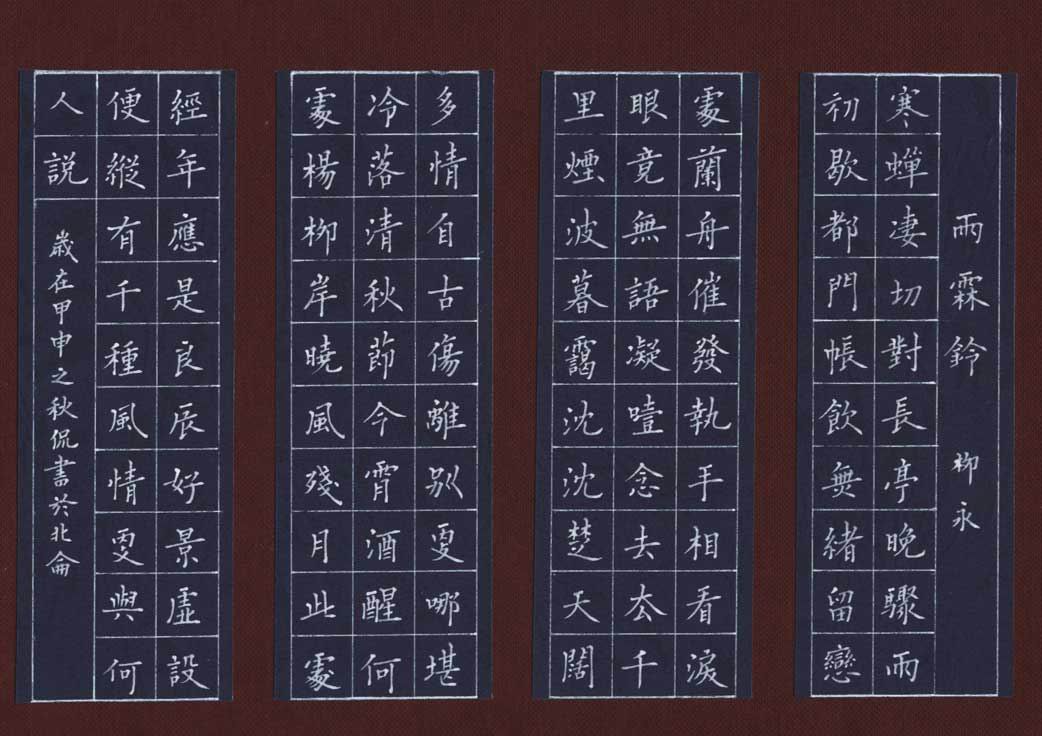 雨霖鈴 柳永
寒蟬凄切對長亭晚驟雨
初歇都門帳飲無緒留戀
處蘭舟催發執手相看淚
眼竟無語凝噎念去去千
里煙波暮靄沈沈楚天闊
多情自古傷離別更哪堪
冷落清秋節今宵酒醒何
處楊柳岸曉風殘月此處
經年應是良辰好景虛設
便縱有千種風情更與何
人説
歲在甲申之秋侃書於北侖